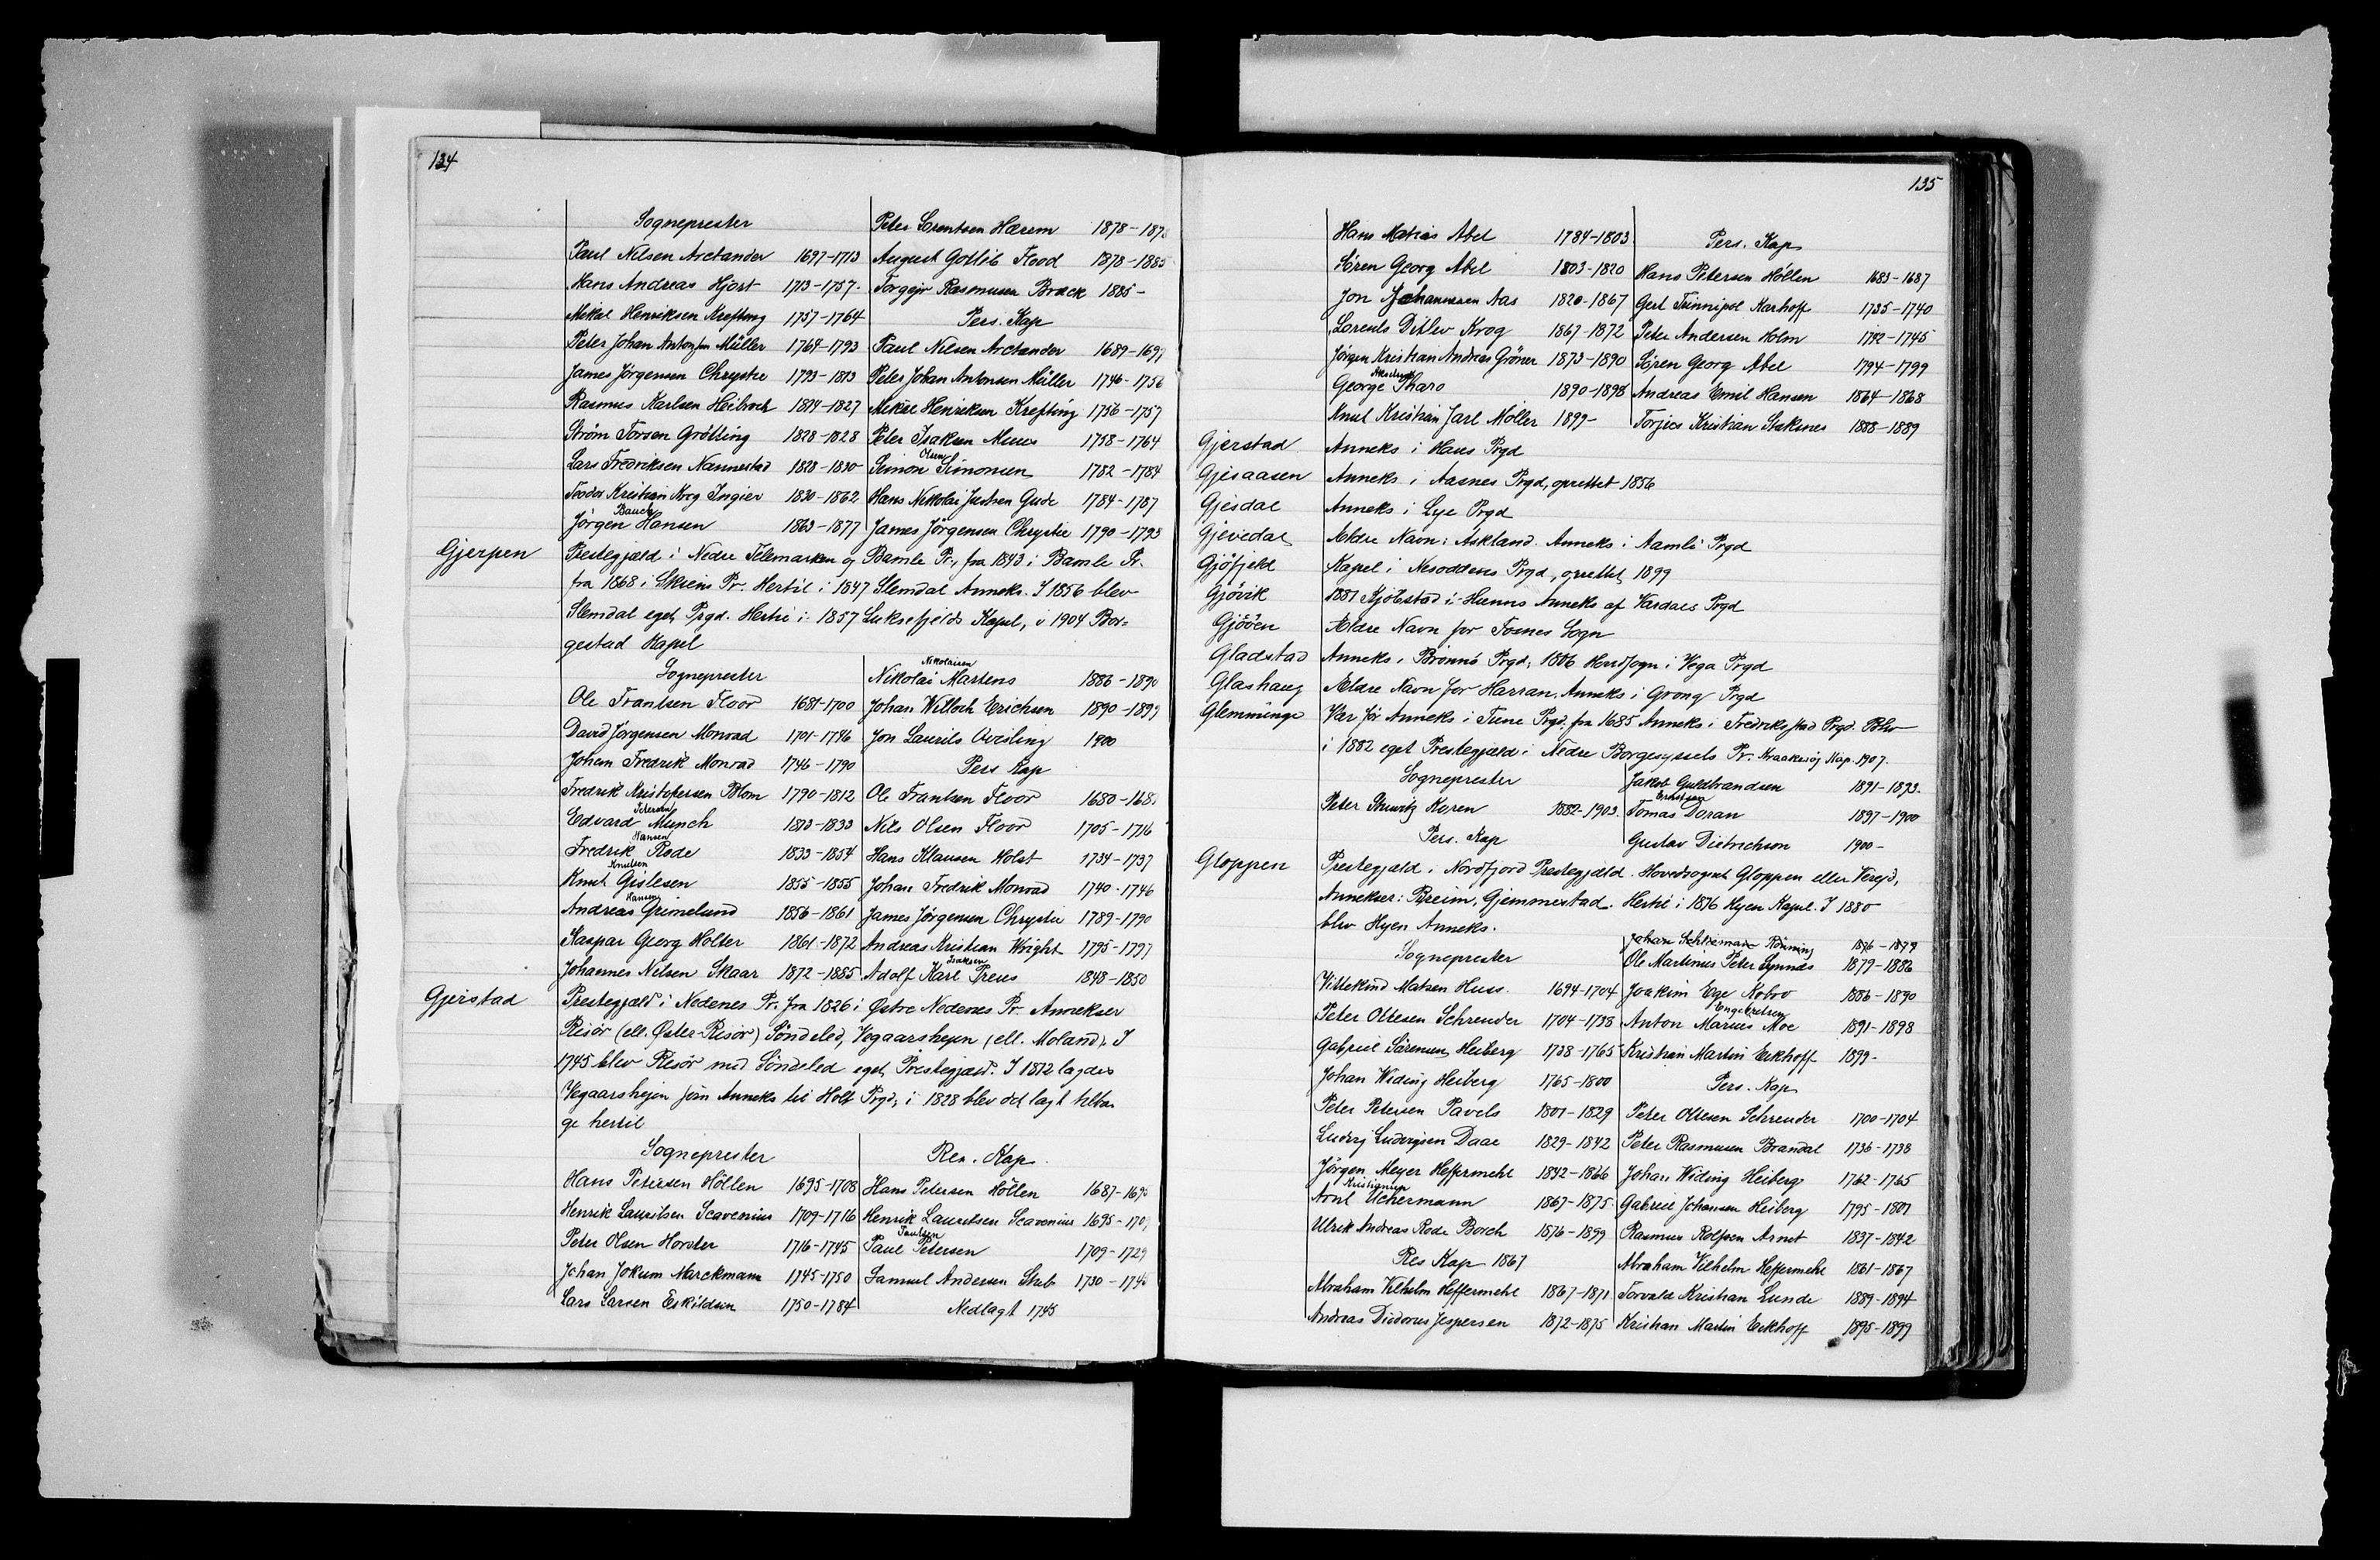 134
Sogneprester
Paul Nilsen Arctander 1697-1713
Hans Andreas Hjort 1713-1757.
Mikal Henriksen Krefting 1757-1764
Peter Johan Antonsen Müller 1764-1793
James Jörgensen Chrystie 1793-1813
Rasmus Karlsen Heibroch 1814-1827
Ström Torsen Grötting 1828-1828
Lars Fredriksen Nannestad 1828-1830
Teodor Kristian Ingier 1830-1862
Bauch
Jörgen Hansen 1863-1877
Peter Lorentsen Hærem 1878-187
August Gotlib Flood 1878-1885
Torgejr Rasmusen Bræck 1885-
Pers. Kap
Paul Nilsen Arctander 1689-1697
Peter Johan Antonsen Müller 1746-1756
Mikal Henriksen Krefting 1756-1757
Peter Isaksen Muus 1758-1764
Olsen
Simon Simonsen 1782-1784
Hans Nikolai Justsen Gude 1784-1787
James Jörgensen Chrystie 1790-1793
Gjerpen Prestegjæld i Nedre Telemarken og Bamle Pr., fra 1843 i Bamle Pr.
fra 1868 i Skiens Pr. Hertil i 1847 Slemdal Anneks. I 1856 blev
Slemdal eget Prgd. Hertil i 1857 Luksefjelds Kapel, i 1904 Bor=
gestad Kapel
Sogneprester
Ole Frantsen Floor 1681-1700
David Jörgensen Monrad 1701-1746
Johan Fredrik Monrad 1746-1790
Fredrik Kristofersen Blom 1790-1812
Petersen
Edvard Munch 1813-1833
Hansen
Fredrik Rode 1833-1854
Knutsen
Knut Gislesen 1855-1855
Hansen
Andreas Grimelund 1856-1861
Kaspar Georg Holter 1861-1872
Johannes Nilsen Skaar 1872-1885
Nikolaisen
Nikolai Martens 1886-1890
Johan Willoch Erichsen 1890-1899
Jon Laurits Qvisling 1900
Pers Kap
Ole Frantsen Floor 1680-168
Nils Olsen Floor 1705-1716
Hans Klausen Holst 1734-1737
Johan Fredrik Monrad 1740-1746
James Jörgensen Chrystie 1789-1790
Andreas Kristian Wright 1795-1797
Isaksen
Adolf Karl Preus 1848-1850
Gjerstad Prestegjæld i Nedenes Pr. fra 1826 i Østre Nedenes Pr. Annekser
Risör (ell. Øster-Risör) Söndeled, Vegaarshejen (ell. Moland). I
1745 blev Risör med Söndeled eget Prestegjæld. I 1812 lagdes
Vegaarshejen som Anneks til Holt Prgd; i 1828 blev det lagt tilba
ge hertil
Sogneprester
Hans Petersen Höllen 1695-1708
Henrik Lauritsen Scavenius 1709-1716
Peter Olsen Horster 1716-1745
Johan Jokum Marckmann 1745-1750
Lars Larsen Eskildsen 1750-1784
Res. Kap.
Hans Petersen Höllen 1687-1695
Henrik Lauritsen Scavenius 1695-170
Paulsen
Paul Petersen 1709-1729
Samuel Andersen Skeb 1730-174
Nedlagt 1745
135
Hans Matias Abel 1784-1803
Sören Georg Abel 1803-1820
Jon Johannessen Aas 1820-1867
Lorents Ditlev Krog 1867-1872
Jörgen Kristian Andreas Gröner 1873-1890
George Pharo 1890-1898
Knut Kristian Jarl Möller 1899-
Pers. Kap
Hans Petersen Höllen 1683-1687
Gert Karhoff 1735-1740
Peter Andersen Holm 1742-1745
Sören Georg Abel 1794-1799
Andreas Emil Hansen 1864-1868
Torjus Kristian Staksnes 1888-1889
Gjerstad Anneks i Haus Prgd
Gjesaasen Anneks i Aasnes Prgd, oprettet 1856
Gjesdal Anneks i Lye Prgd
Gjevedal Ældre Navn: Askland. Anneks i Aamli Prgd
Gjöfjeld Kapel i Nesoddens Prgd, oprettet 1899
Gjövik 1881 Kjöbstad i Hunns Anneks af Vardals Prgd
Gjööen Ældre Navn for Fosnes Sogn
Gladstad Anneks i Brönnö Prgd; 1806 Hovdsogn i Vega Prgd
Glashaug Ældre Navn for Harran. Anneks i Grong Prgd
Glemminge Var för Anneks i Tune Prgd. fra 1685 Anneks i Fredriksstad Prgd. Blev
i 1882 eget Prestegjæld i Nedre Borgesyssels Pr. Kraakeröy Kap. 1907.
Sogneprester
Peter Schwitz Koren 1882-1903.
Pers. Kap
Jakob Guldbrandsen 1891-1893.
Ernstsen
Tomas Doran 1897-1900
Gustav Dietrichson 1900-
Gloppen Prestegjæld i Nordfjord Prestegjæld. Hovedsognet Gloppen eller Verejd,
Annekser: Breim, Gjemmestad. Hertil i 1876 Hyen Kapel. I 1880
blev Hyen Anneks.
Sogneprester
Vittekind Matsen Huus. 1694-1704
Peter Ottesen Schreuder 1704-1738
Gabriel Sörensen Heiberg 1738-1765
Johan Widing Heiberg 1765-1800
Peter Petersen Pavels 1801-1829
Ludvig Ludvigsen Daae 1829-1842
Jörgen Meyer Heffermehl 1842-1866
Kristiansen
Arnt Uchermann 1867-1875.
Ulrik Andreas Rode Borch 1876-1899
Res Kap 1867
Abraham Vilhelm Heffermehl 1867-1871
Andreas Diderius Jespersen 1872-1875
Johan Schliemann Rönning 1876-1879
Ole Martinus Peter Synnæs 1879-1886
Joakim Ege Kobro 1886-1890
Engebretsen
Anton Marius Moe 1891-1898
Kristian Martin Eckhoff 1899-
Pers. Kap
Peter Ottesen Schreuder 1700-1704
Peter Rasmusen Brandal 1736-1738
Johan Widing Heiberg 1762-1765
Gabriel Johansen Heiberg 1795-1801
Rasmus Rolfsen Arnet 1837-1842
Abraham Vilhelm Heffermehl 1861-1867
Torvald Kristian Lunde 1889-1894
Kristian Martin Eckhoff 1895-1899